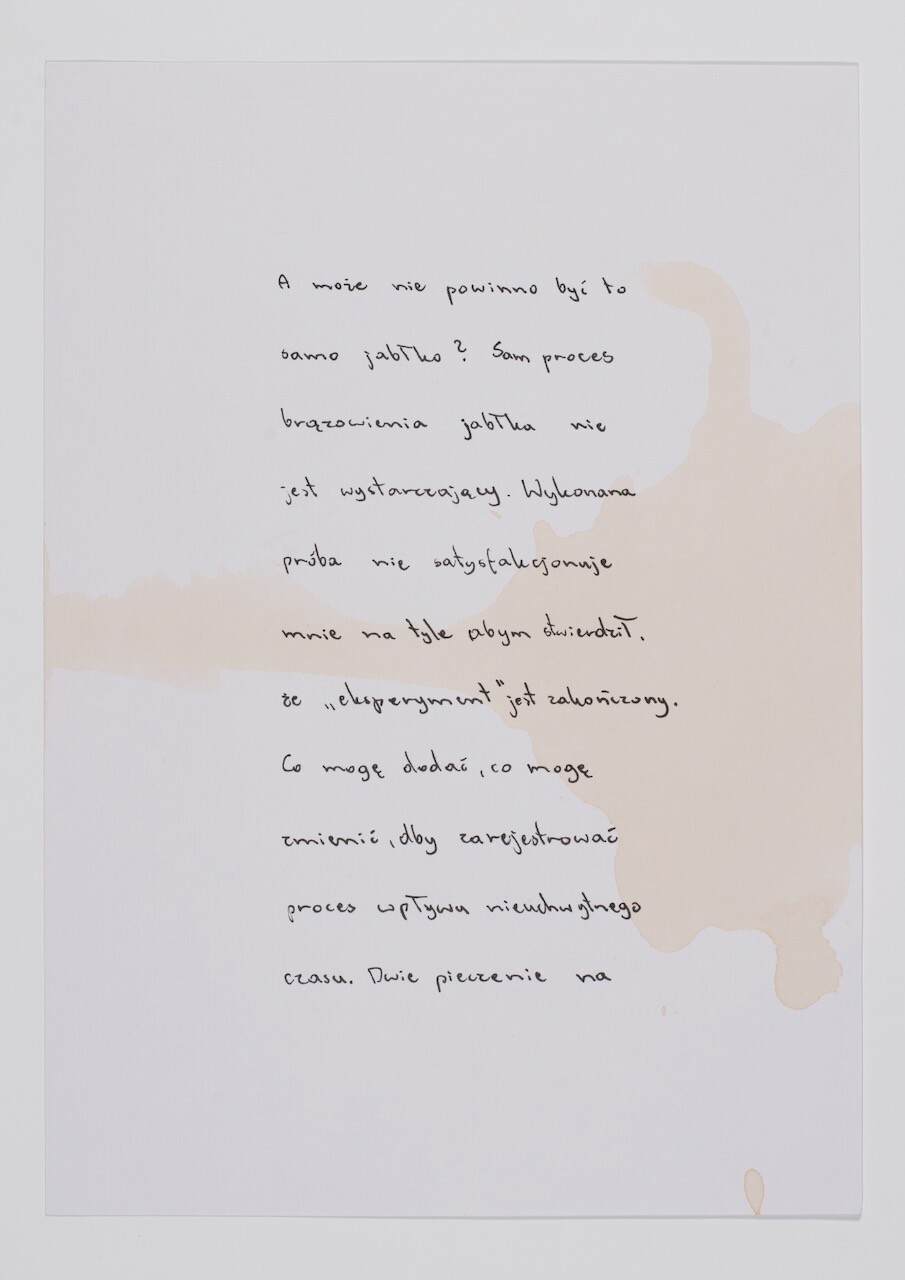 A może nie powinno być to
samo jabłko? Sam proces
brązowienia jabłka nie
jest wystarczający. Wykonana
próba nie satysfakcjonuje
mnie na tyle abym stwierdził,
że „eksperyment” jest zakończony.
Co mogę dodać, co mogę
zmienić, aby zarejestrować
proces wpływu nieuchwytnego
czasu. Dwie pieczenie na